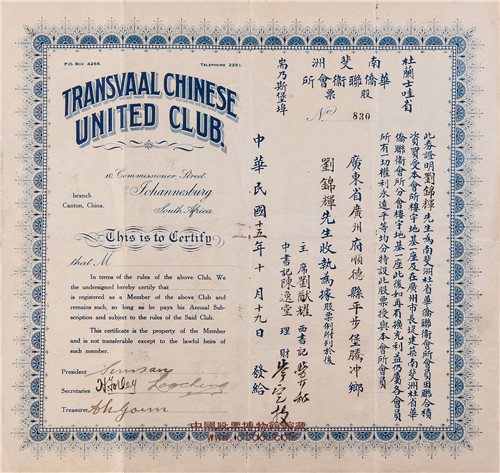 P.O. BOX 4266.
TELEPHONE 2251.
TRANSVAAL CHINESE
UNITED CLUB.
10, Commissioner Street
branch
Canton, China.
Johannesburg
South Africa.
This is to Certify
that M
In terms of the rules of the above Club, We
the undersigned hereby certify that
is registered as a Member of the above Club and
remains such, so long as he pays his Annual Sub-
scription and subject to the rules of the Said Club.
This certificate is the property of the Member
and is not transferable except to the lawful heirs of
such member.
President
Secretaries
Treasurer
南斐洲
華僑聯衞會所
股票
No 830
杜蘭士哇省
此券證明劉錦輝先生為南斐洲杜省華僑聯衞會所會員因聯合積
資買受本會所樓宇地基一座及在廣州市長堤建築南斐洲杜省華
僑聯衞會所分會樓宇地基一座此後如再有擴充利益仍屬各會員
所有一切權利永遠平等均分特設此股票授與本會所會員
廣東省廣州府順德縣平步堡騰冲鄉
劉錦輝先生收執為據股票例附列於後
主席劉獻耀 西書記
中書記陳逸雲 理財
中華民國十五年十月十九日發給
中國股票博物館館藏